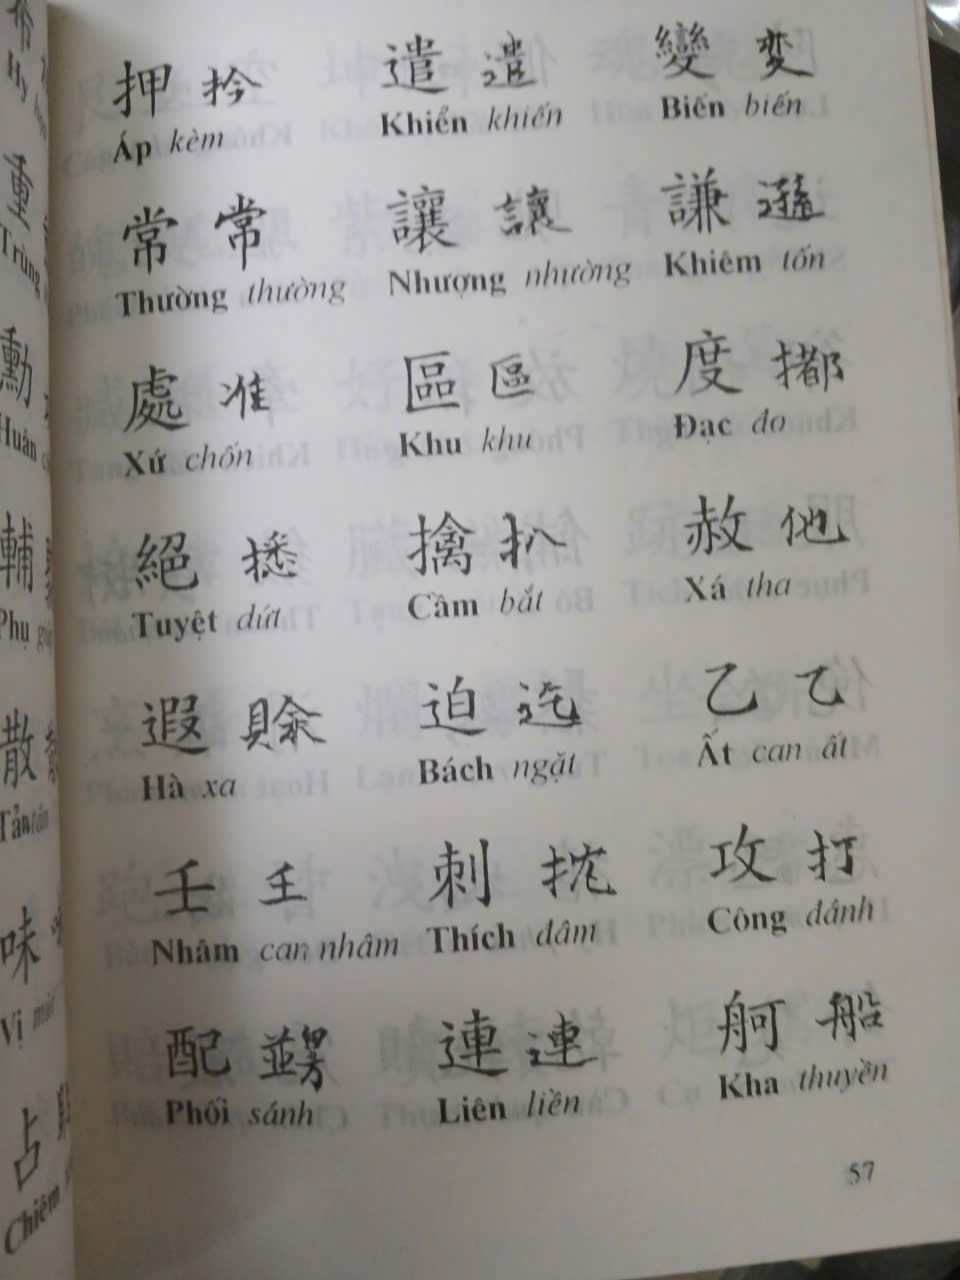 押 拎 遣 遣 變 変
Áp kèm Khiển khiến Biến biến
常 常 讓 讓 謙 遜
Thường thường Nhượng nhường Khiêm tốn
處 准 區 區 度
Xứ chốn Khu khu Đạc đo
絕 擒 扒 赦 他
Tuyệt dứt Cầm bắt Xá tha
遐 賒 迫 迄 乙 乙
Hà xa Bách ngặt Ất can ất
壬 壬 刺 攻 打
Nhâm can nhâm Thích đâm Công đánh
配 連 連 舸 船
Phối sánh Liên liền Kha thuyền
57
Hy
重
Trùng
勳
Huân
輔
Phụ
散
Tản tán
味
Vị mùi
占
Chiêm